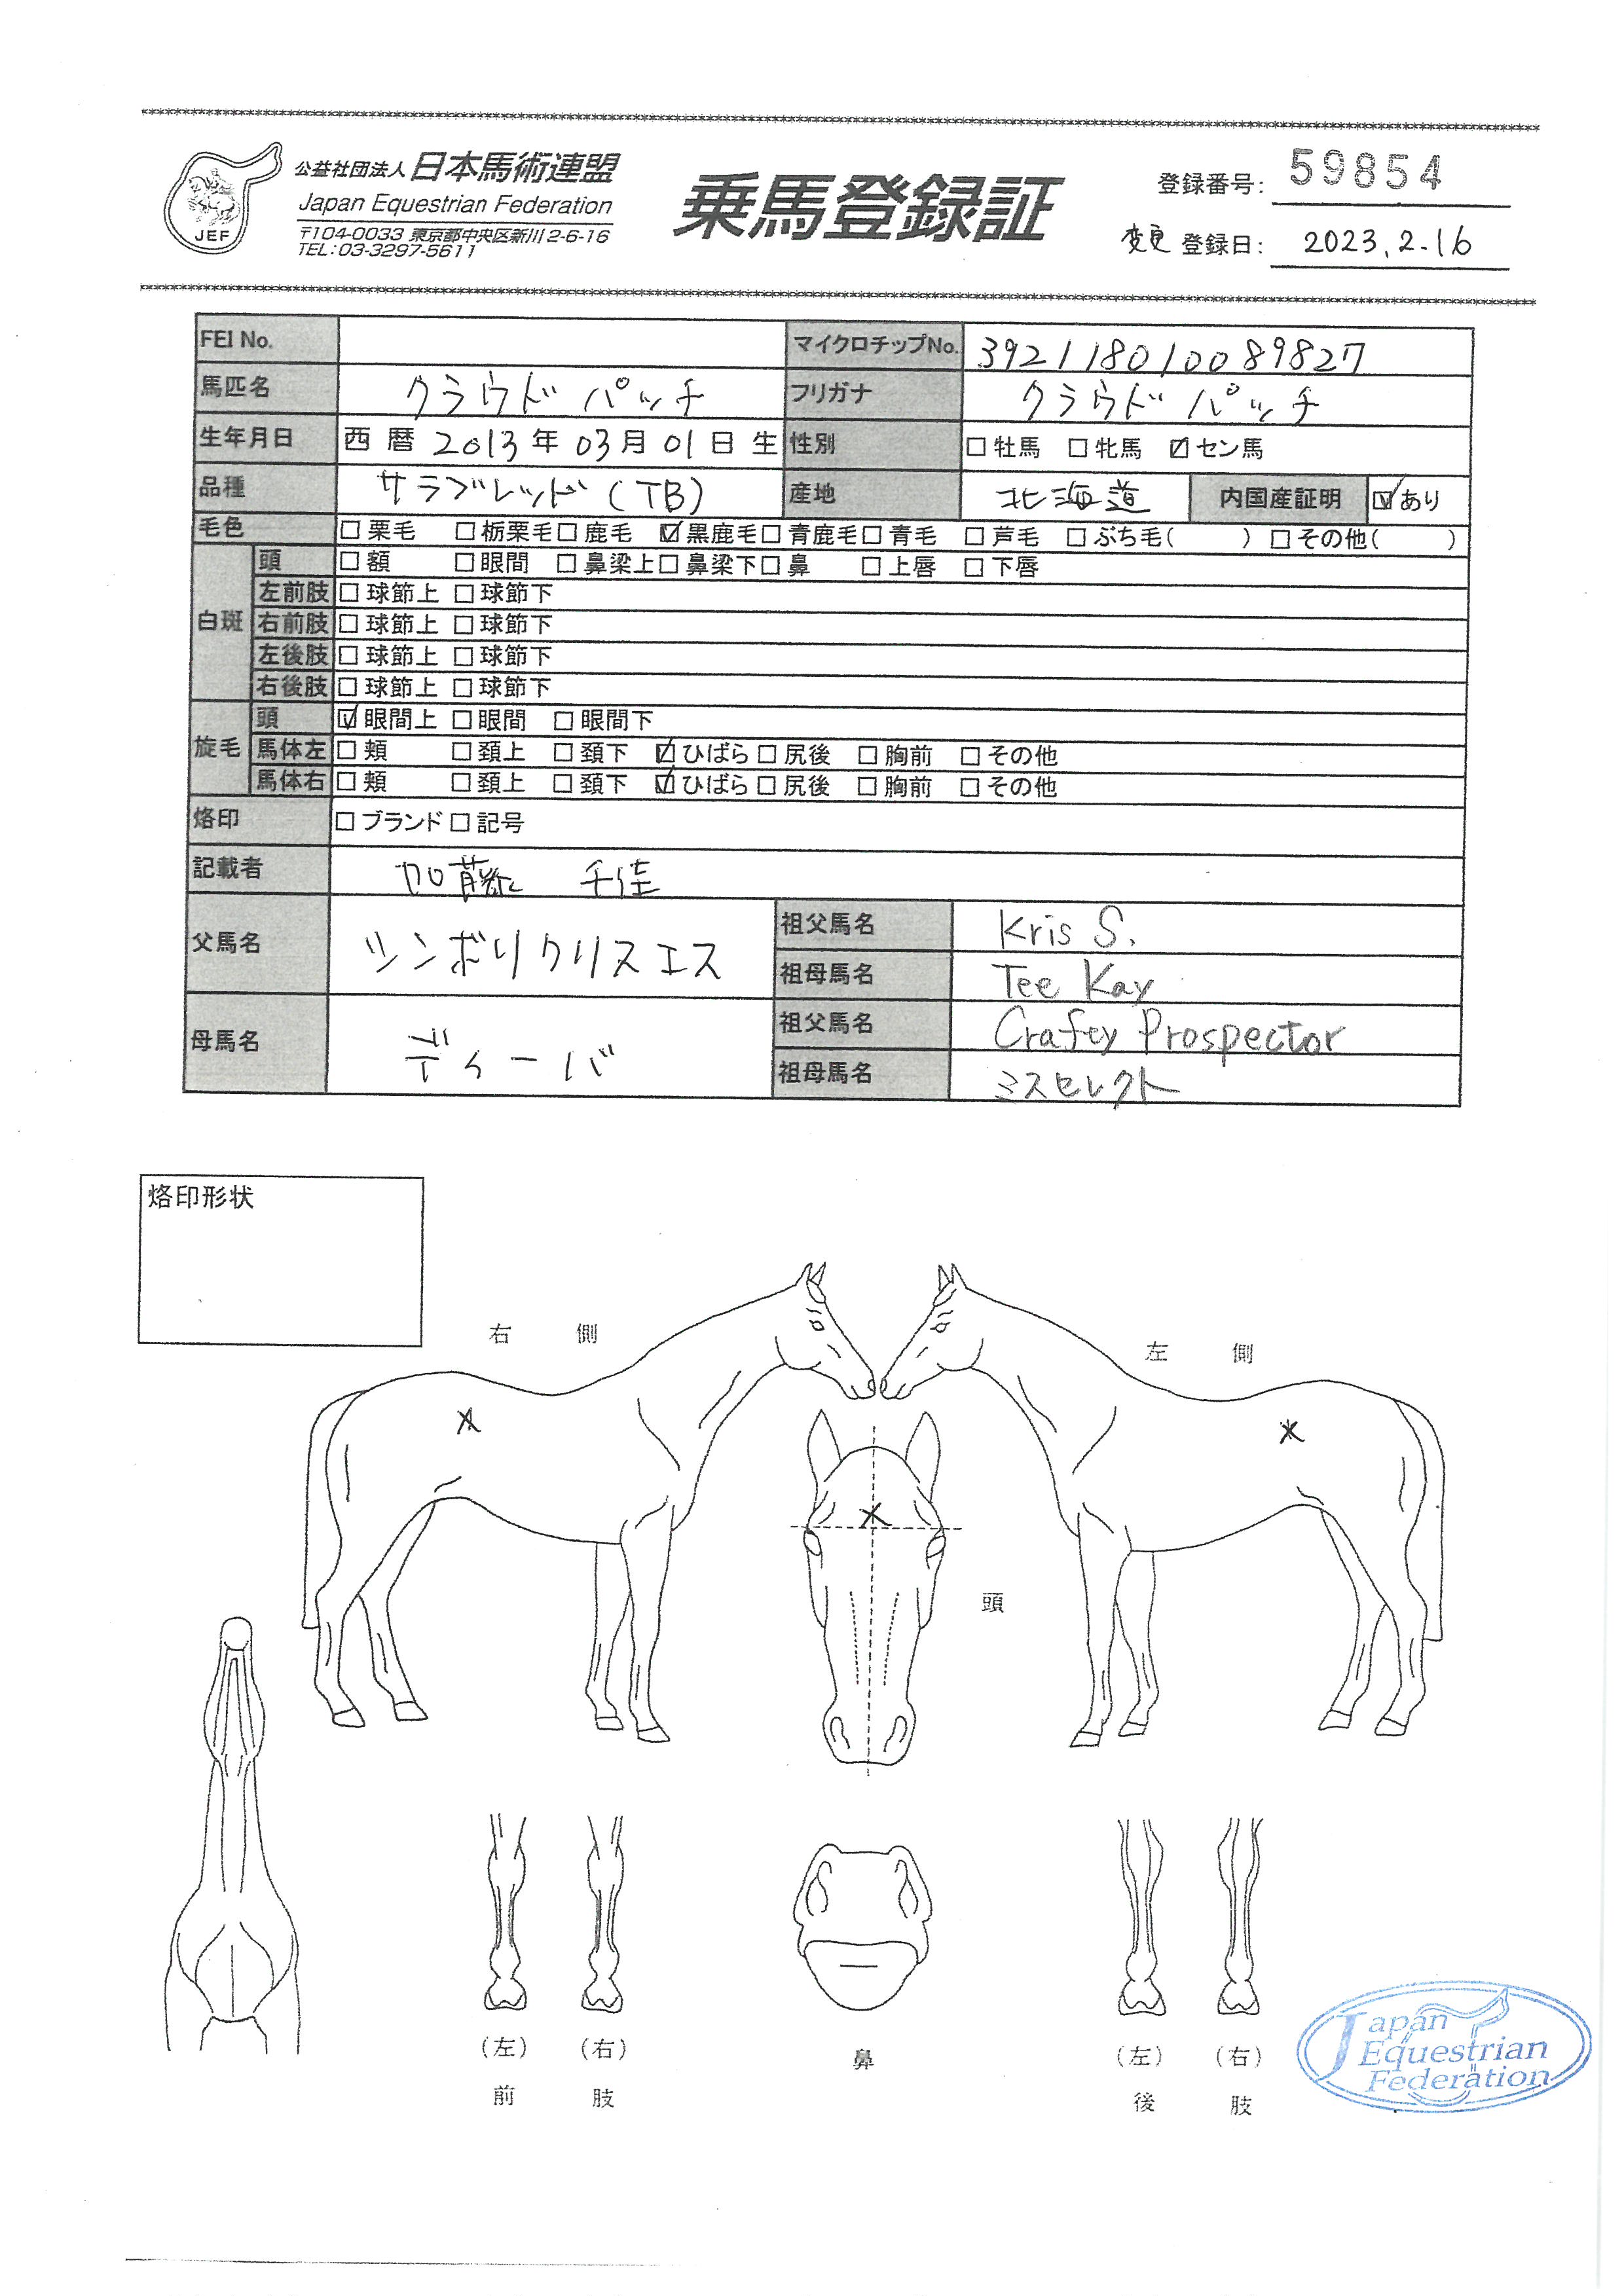 公益社団法人 日本馬術連盟
Japan Equestrian Federation
〒104-0033 東京都中央区新川2-6-16
TEL:03-3297-5611
JEF
乗馬登録証
登録番号: 59854
変更 登録日: 2023.2.16
FEI No. マイクロチップNo. 392118010089827
馬匹名 クラウドパッチ フリガナ クラウドパッチ
生年月日 西暦 2013年 03月 01日生 性別 □牡馬 □牝馬 ☑セン馬
品種 サラブレッド(TB) 産地 北海道 内国産証明 ☑あり
毛色 □栗毛 □栃栗毛 □鹿毛 ☑黒鹿毛 □青鹿毛 □青毛 □芦毛 □ぶち毛( ) □その他( )
白斑 頭 □額 □眼間 □鼻梁上 □鼻梁下 □鼻 □上唇 □下唇
左前肢 □球節上 □球節下
右前肢 □球節上 □球節下
左後肢 □球節上 □球節下
右後肢 □球節上 □球節下
旋毛 頭 ☑眼間上 □眼間 □眼間下
馬体左 □頬 □頚上 □頚下 ☑ひばら □尻後 □胸前 □その他
馬体右 □頬 □頚上 □頚下 ☑ひばら □尻後 □胸前 □その他
烙印 □ブランド □記号
記載者 加藤 千佳
父馬名 シンボリクリスエス 祖父馬名 Kris S.
祖母馬名 Tee Kay
母馬名 ディーバ 祖父馬名 Crafty Prospector
祖母馬名 ミスセレクト
烙印形状
右 側
左 側
頭
(左) (右)
前 肢
鼻
(左) (右)
後 肢
Japan
Equestrian
Federation